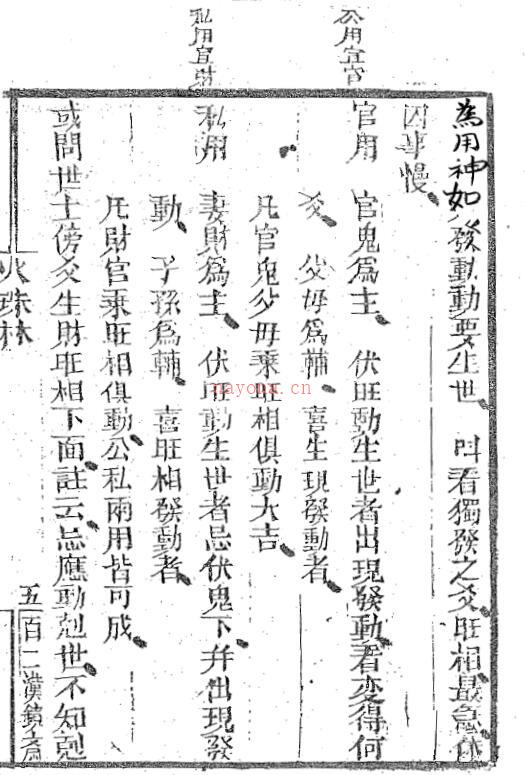 公用宜官
私用宜財
為用神如發動動要生世 叫看獨發之爻旺相最急休
囚事慢
官用 官鬼爲主 伏旺動生世者出現發動看变得何
爻 父母爲輔 喜生現發動者
凡官鬼父母乘旺相俱動大吉
私用 妻財爲主 伏旺動生世者忌伏鬼下并出現發
動 子孫爲輔 喜旺相發動者
凡財官乘旺相俱動公私兩用皆可成
或問世上傍爻生財旺相下面註云忌應動剋世不知剋
火珠林
五
百二漢鏡齋
nayona.cn